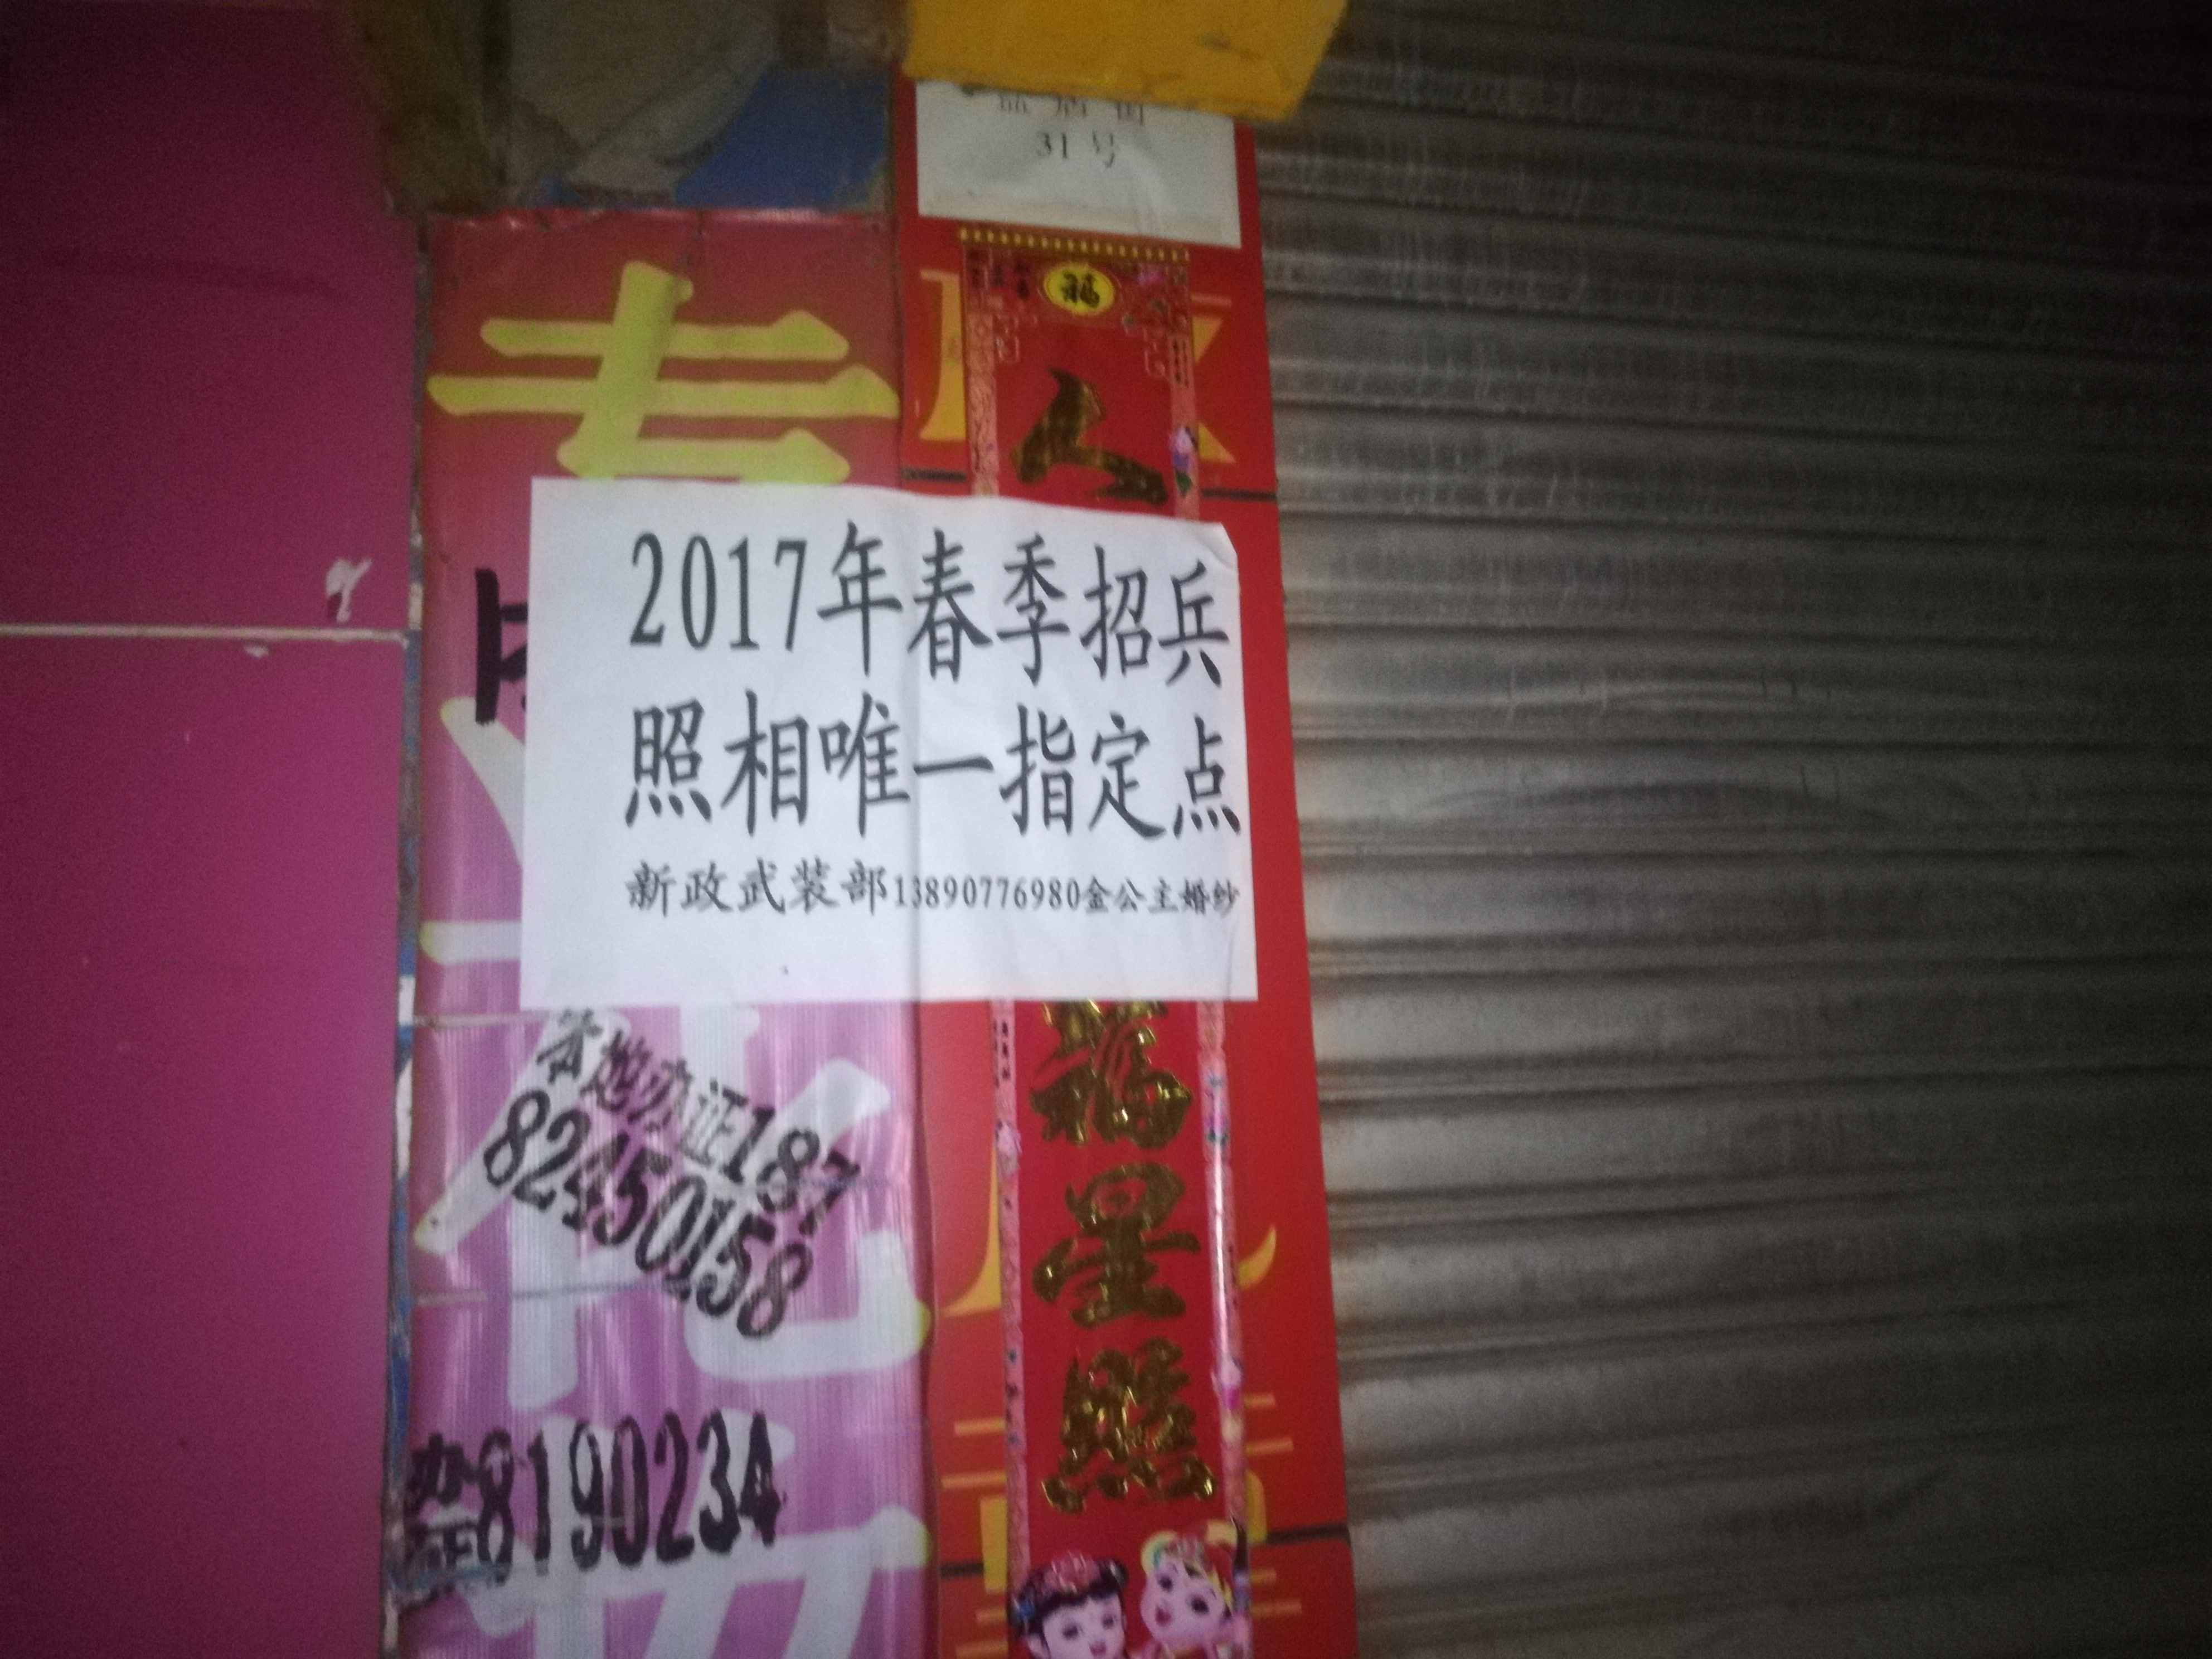 31号
福
专
人
2017年春季招兵
照相唯一指定点
新政武装部13890776980金公主婚纱
福
星
照
本地办证187
82450158
办证8190234